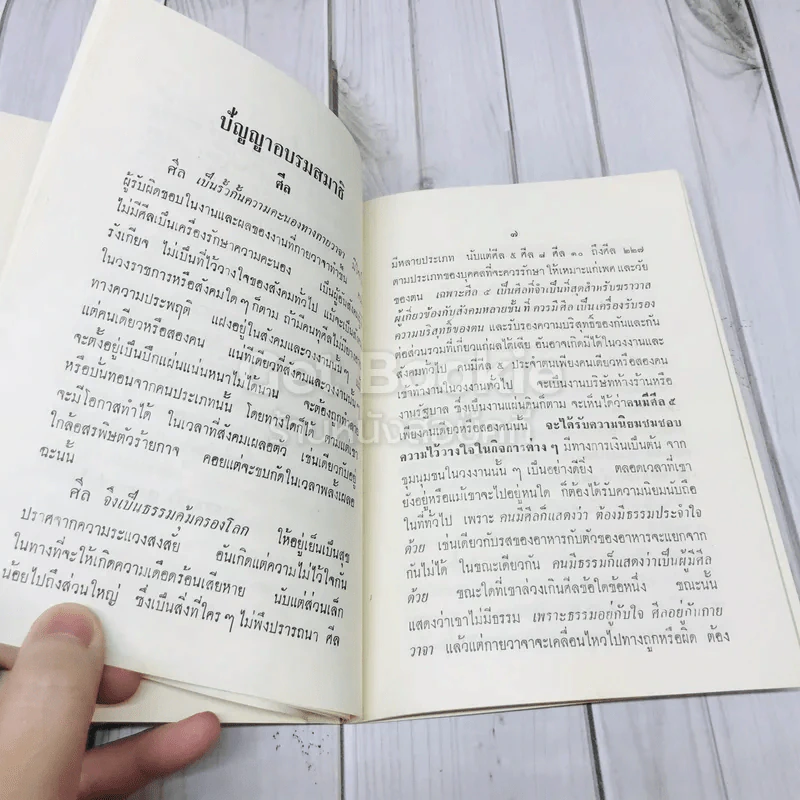 ปัญญาอบรมสมาธิ
ศีล
ศีล เป็นรั้วกั้นความคะนองทางกายวาจา
ผู้รับผิดชอบในงานและผลของงานที่กายวาจาทำขึ้น
ไม่มีศีลเป็นเครื่องรักษาความคะนอง เป็นผู้อันสังคม
รังเกียจ ไม่เป็นที่ไว้วางใจของสังคมทั่วไป แม้จะเป็น
ในวงราชการหรือสังคมใด ๆ ก็ตาม ถ้ามีคนทุศีลไม่มี
ทางความประพฤติ แฝงอยู่ในสังคมและวงงานนั้น ๆ
แต่คนเดียวหรือสองคน แน่ทีเดียวที่สังคมและวงงานนั้น
จะตั้งอยู่เป็นปึกแผ่นแน่นหนาไม่ได้นาน จะต้องถูก
หรือบั่นทอนจากคนประเภทนั้น โดยทางใดก็ได้ ตามแต่เขา
จะมีโอกาสทำได้ ในเวลาที่สังคมเผลอตัว เช่นเดียวกับอยู่
ใกล้อสรพิษตัวร้ายกาจ คอยแต่จะขบกัดในเวลาพลั้งเผลอ
ฉะนั้น
ศีล จึงเป็นธรรมคุ้มครองโลก ให้อยู่เย็นเป็นสุข
ปราศจากความระแวงสงสัย อันเกิดแต่ความไม่ไว้ใจกัน
ในทางที่จะให้เกิดความเดือดร้อนเสียหาย นับแต่ส่วนเล็ก
น้อยไปถึงส่วนใหญ่ ซึ่งเป็นสิ่งที่ใคร ๆ ไม่พึงปรารถนา ศีล
๗
มีหลายประเภท นับแต่ศีล ๕ ศีล ๘ ศีล ๑๐ ถึงศีล ๒๒๗
ตามประเภทของบุคคลที่จะควรรักษา ให้เหมาะแก่เพศ และวัย
ของตน เฉพาะศีล ๕ เป็นศีลที่จำเป็นที่สุดสำหรับฆราวาส
ผู้เกี่ยวข้องกับสังคมหลายชั้น ที่ ควรมีศีล เป็นเครื่องรับรอง
ความบริสุทธิ์ของตน และรับรองความบริสุทธิ์ของกันและกัน
ต่อส่วนรวมที่เกี่ยวแก่ผลได้เสีย อันอาจเกิดมีได้ในวงงานและ
สังคมทั่วไป คนมีศีล ๕ ประจำตนเพียงคนเดียวหรือสองคน
เข้าทำงานในวงงานทั่วไป จะเป็นงานบริษัทห้างร้านหรือ
งานรัฐบาล ซึ่งเป็นงานแผ่นดินก็ตาม จะเห็นได้ว่าคนมีศีล ๕
เพียงคนเดียวหรือสองคนนั้น จะได้รับความนิยมชมชอบ
ความไว้วางใจในกิจการต่าง ๆ มีทางการเงินเป็นต้น จาก
ชุมนุมชนในวงงานนั้น ๆ เป็นอย่างดียิ่ง ตลอดเวลาที่เขา
ยังอยู่หรือแม้เขาจะไปอยู่หนใด ก็ต้องได้รับความนิยมนับถือ
ในที่ทั่วไป เพราะ คนมีศีลก็แสดงว่า ต้องมีธรรมประจำใจ
ด้วย เช่นเดียวกับรสของอาหารกับตัวของอาหารจะแยกจาก
กันไม่ได้ ในขณะเดียวกัน คนมีธรรมก็แสดงว่าเป็นผู้มีศีล
ด้วย ขณะใดที่เขาล่วงเกินศีลข้อใดข้อหนึ่ง ขณะนั้น
แสดงว่าเขาไม่มีธรรม เพราะธรรมอยู่กับใจ ศีลอยู่กับกาย
วาจา แล้วแต่กายวาจาจะเคลื่อนไหวไปทางถูกหรือผิด ต้อง